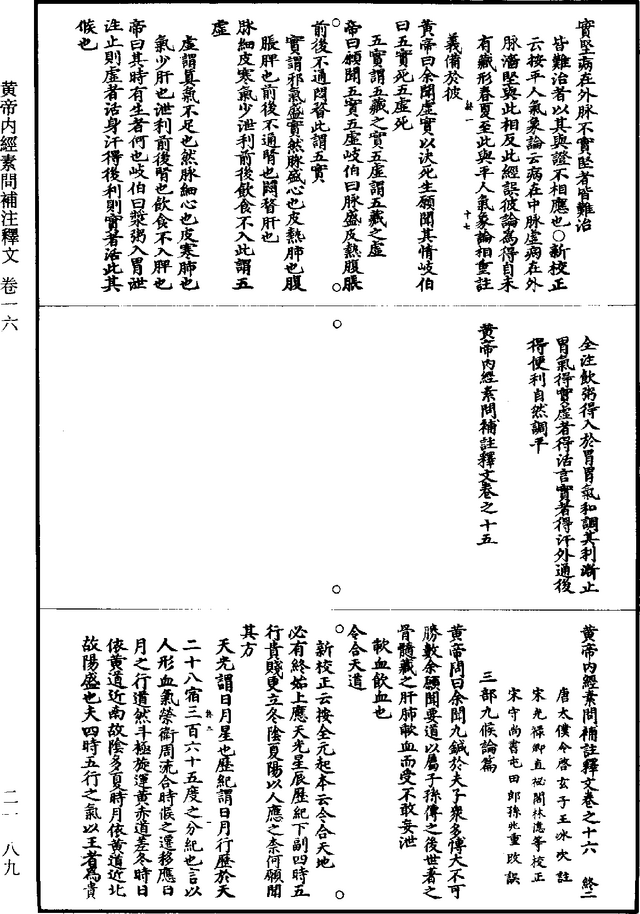 實堅病在外脉不實堅者皆難治
皆難治者以其與證不相應也○新校正
云按平人氣象論云病在中脉虛病在外
脉濇堅與此相反此經誤彼論為得自未
有藏形春夏至此與平人氣象論相重註
義備於彼
黃帝曰余聞虛實以決死生願聞其情岐伯
曰五實死五虛死
五實謂五藏之實五虛謂五藏之虛
帝曰願聞五實五虛岐伯曰脉盛皮熱腹脹
前後不通悶瞀此謂五實
實謂邪氣盛實然脉盛心也皮熱肺也腹
脹脾也前後不通腎也悶瞀肝也
脉細皮寒氣少泄利前後飲食不入此謂五
虛
虛謂真氣不足也然脉細心也皮寒肺也
氣少肝也泄利前後腎也飲食不入脾也
帝曰其時有生者何也岐伯曰漿粥入胃泄
注止則虛者活身汗得後利則實者活此其
候也
全注飲粥得入於胃胃氣和調其利漸止
胃氣得實虛者得活言實者得汗外通後
得便利自然調平
黃帝內經素問補註釋文卷之十五
黃帝內經素問補註釋文卷之十六 終二
唐太僕令啓玄子王冰次註
宋光祿卿直祕閣林億等校正
宋守尚書屯田郎孫兆重改誤
三部九候論篇
黃帝問曰余聞九鍼於夫子眾多博大不可
勝數余願聞要道以屬子孫傳之後世著之
骨髓藏之肝肺歃血而受不敢妄泄
歃血飲血也
令合天道
新校正云按全元起本云令合天地
必有終始上應天光星辰歷紀下副四時五
行貴賤更立冬陰夏陽以人應之奈何願聞
其方
天光謂日月星也歷紀謂日月行歷於天
二十八宿三百六十五度之分紀也言以
人形血氣榮衛周流合時候之遷移應日
月之行道然斗極旋運黃赤道差冬時日
依黃道近南故陰多夏時月依黃道近北
故陽盛也夫四時五行之氣以王者為貴
黃帝內經素問補注釋文 卷一六
二一 八九